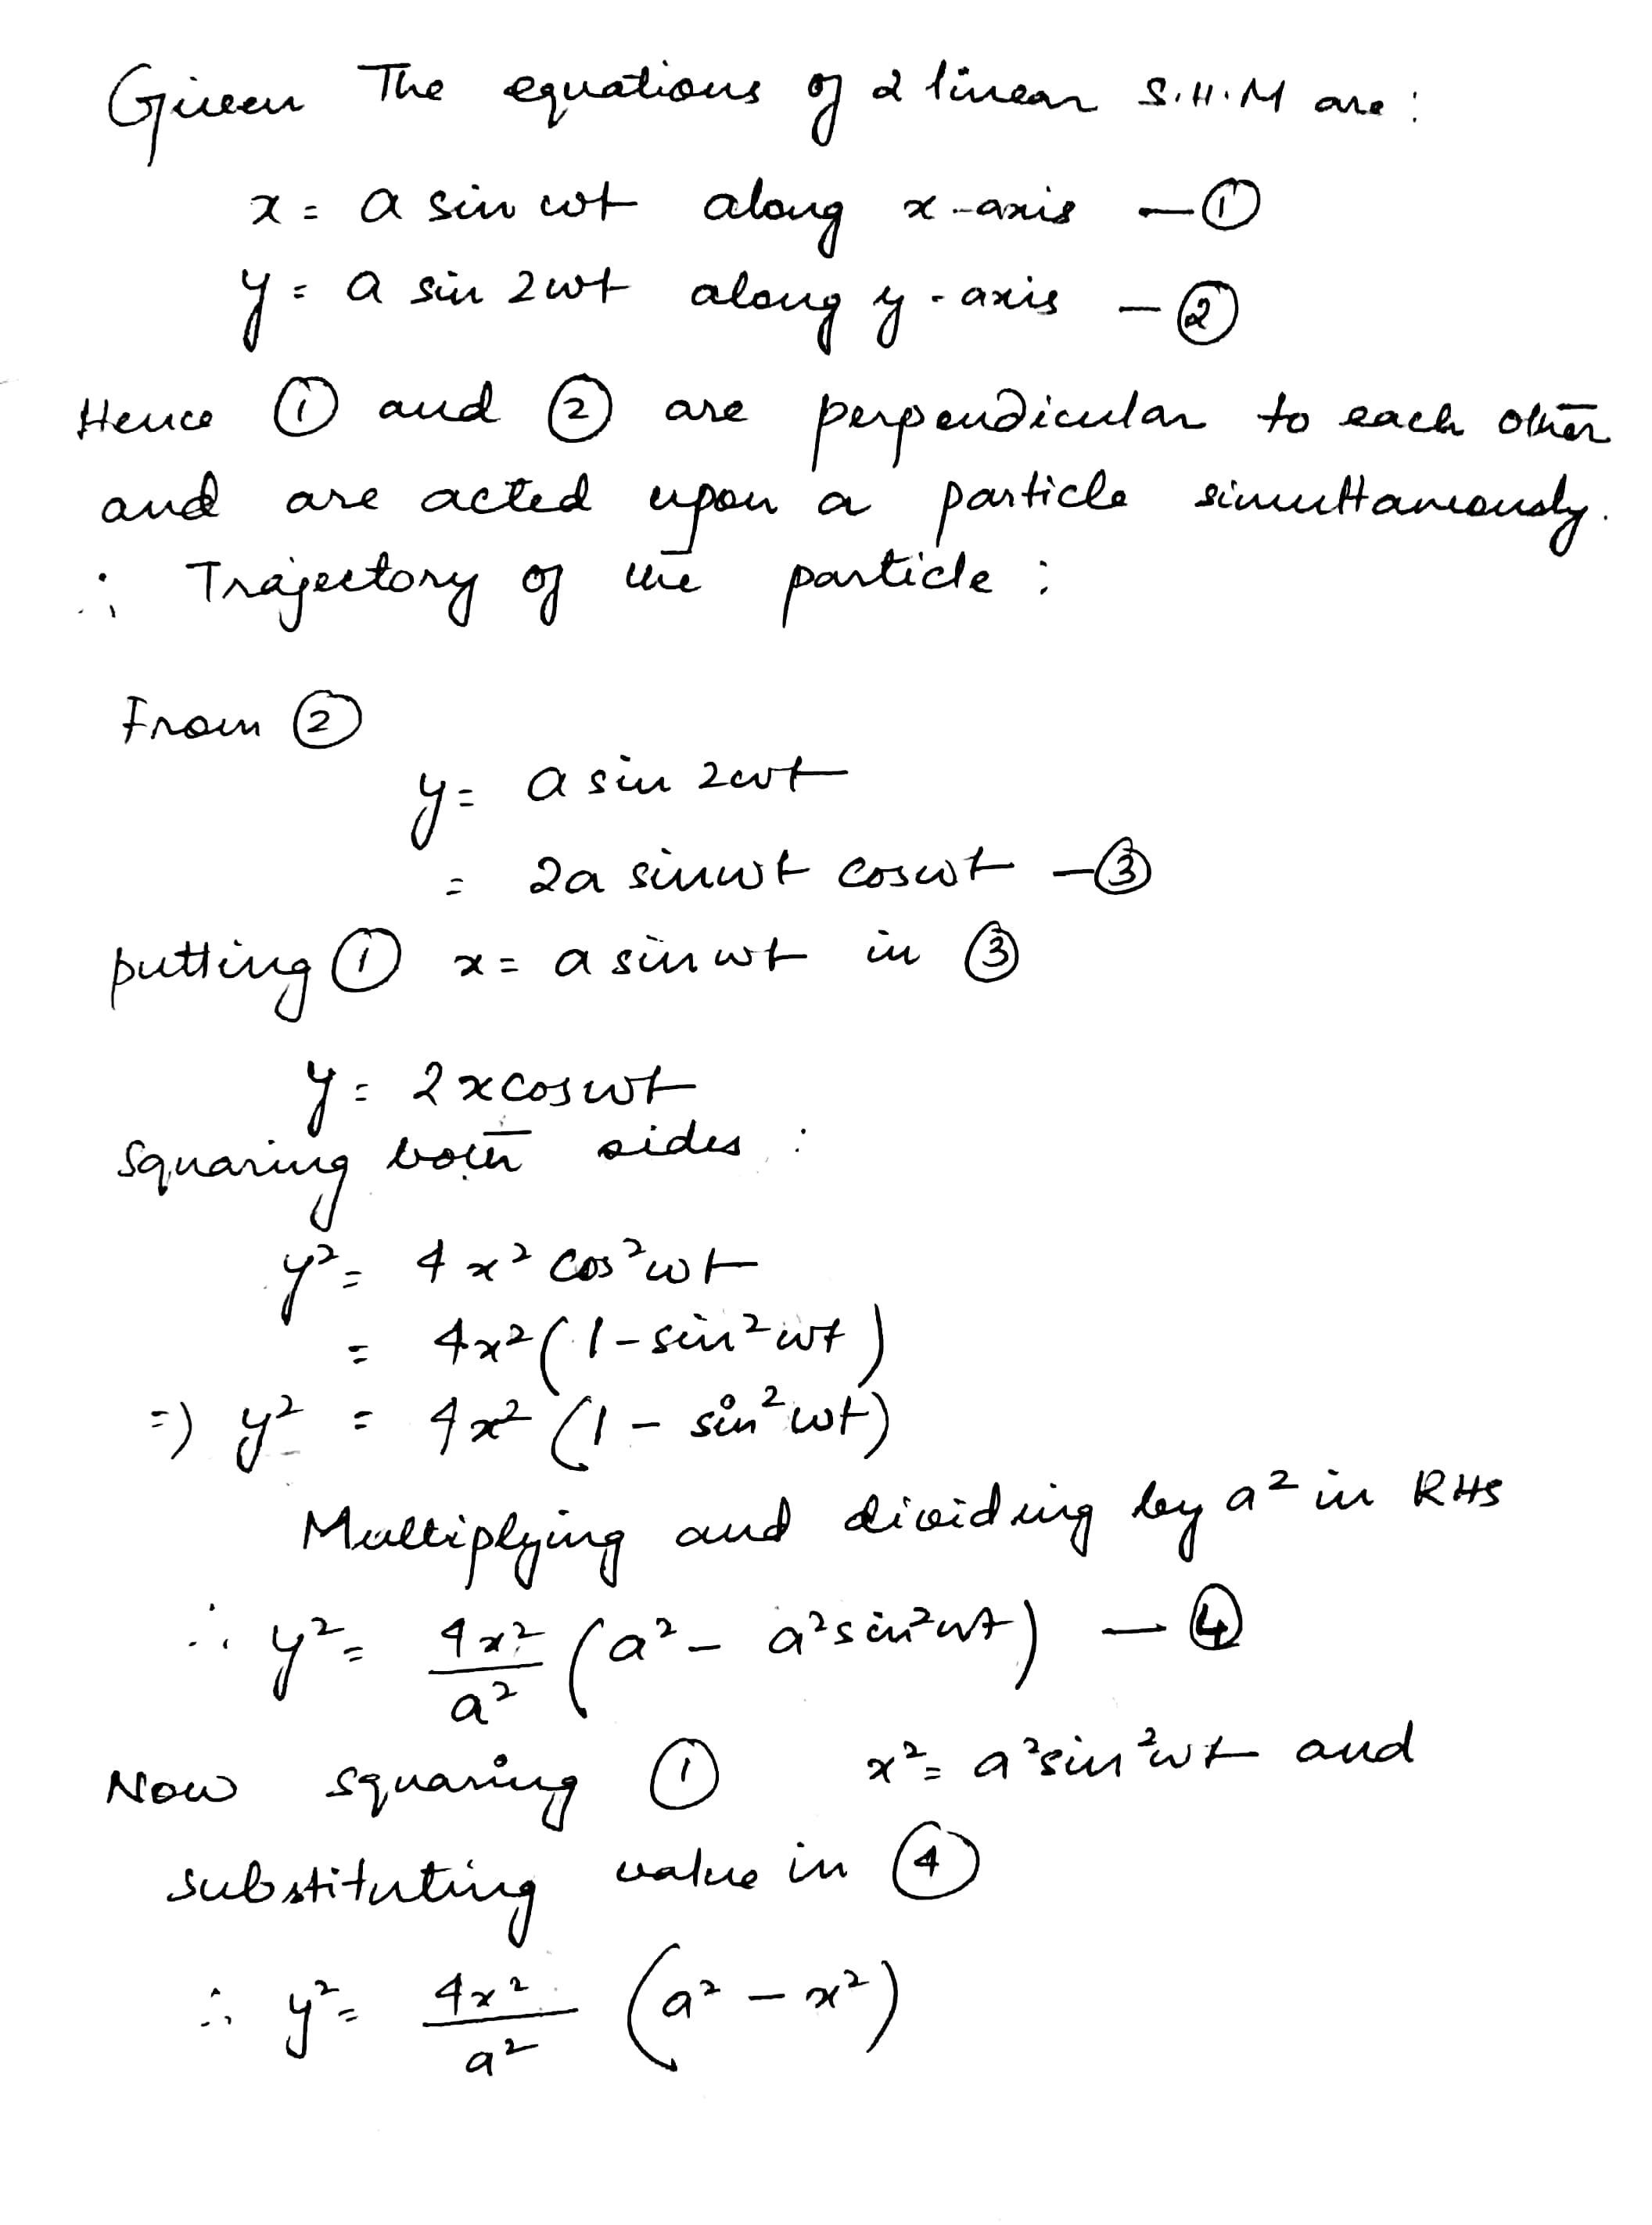 Given The equations of 2 linear S.H.M are :
x = a sin ωt along x-axis — ①
y = a sin 2ωt along y-axis — ②
Hence ① and ② are perpendicular to each other
and are acted upon a particle simultaneously.
∴ Trajectory of the particle :
From ②
y = a sin 2ωt
= 2a sinωt cosωt — ③
putting ① x = a sin ωt in ③
y = 2x cosωt
Squaring both sides :
y² = 4x² cos²ωt
= 4x² (1 - sin²ωt)
=) y² = 4x² (1 - sin²ωt)
Multiplying and dividing by a² in RHS
∴ y² = 4x²/a² (a² - a²sin²ωt) — ④
Now squaring ① x² = a²sin²ωt and
substituting value in ④
∴ y² = 4x²/a² (a² - x²)